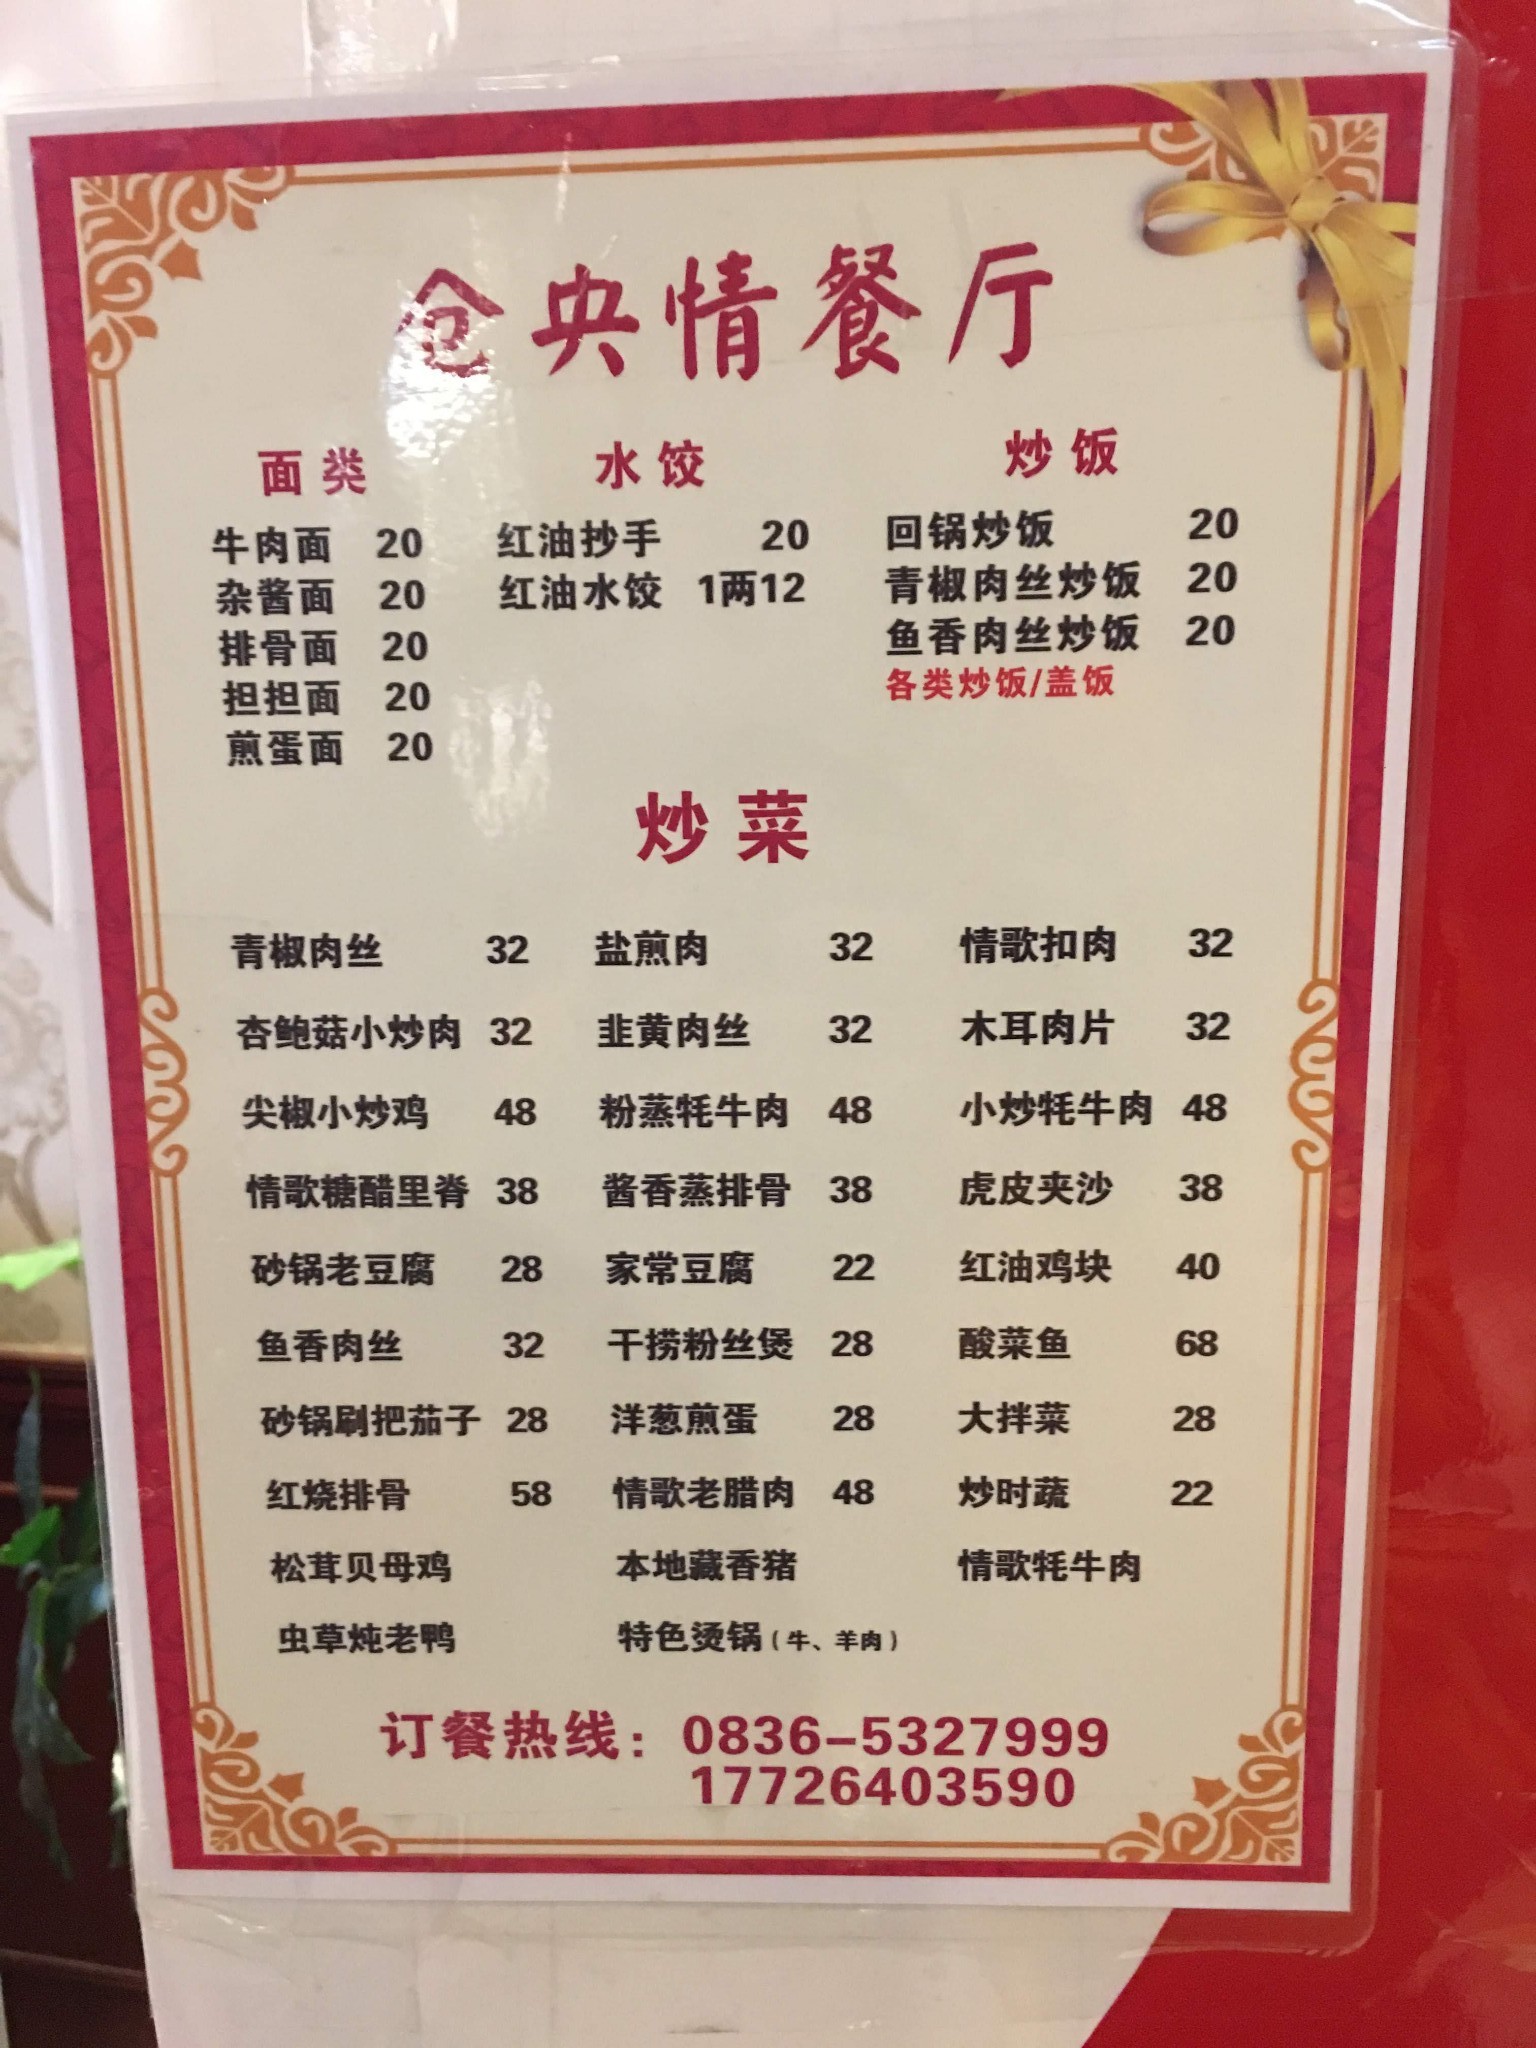 仓央情餐厅
面类 水饺 炒饭
牛肉面 20 红油抄手 20 回锅炒饭 20
杂酱面 20 红油水饺 1两12 青椒肉丝炒饭 20
排骨面 20 鱼香肉丝炒饭 20
担担面 20 各类炒饭/盖饭
煎蛋面 20
炒菜
青椒肉丝 32 盐煎肉 32 情歌扣肉 32
杏鲍菇小炒肉 32 韭黄肉丝 32 木耳肉片 32
尖椒小炒鸡 48 粉蒸牦牛肉 48 小炒牦牛肉 48
情歌糖醋里脊 38 酱香蒸排骨 38 虎皮夹沙 38
砂锅老豆腐 28 家常豆腐 22 红油鸡块 40
鱼香肉丝 32 干捞粉丝煲 28 酸菜鱼 68
砂锅刷把茄子 28 洋葱煎蛋 28 大拌菜 28
红烧排骨 58 情歌老腊肉 48 炒时蔬 22
松茸贝母鸡 本地藏香猪 情歌牦牛肉
虫草炖老鸭 特色烫锅（牛、羊肉）
订餐热线：0836-5327999
17726403590